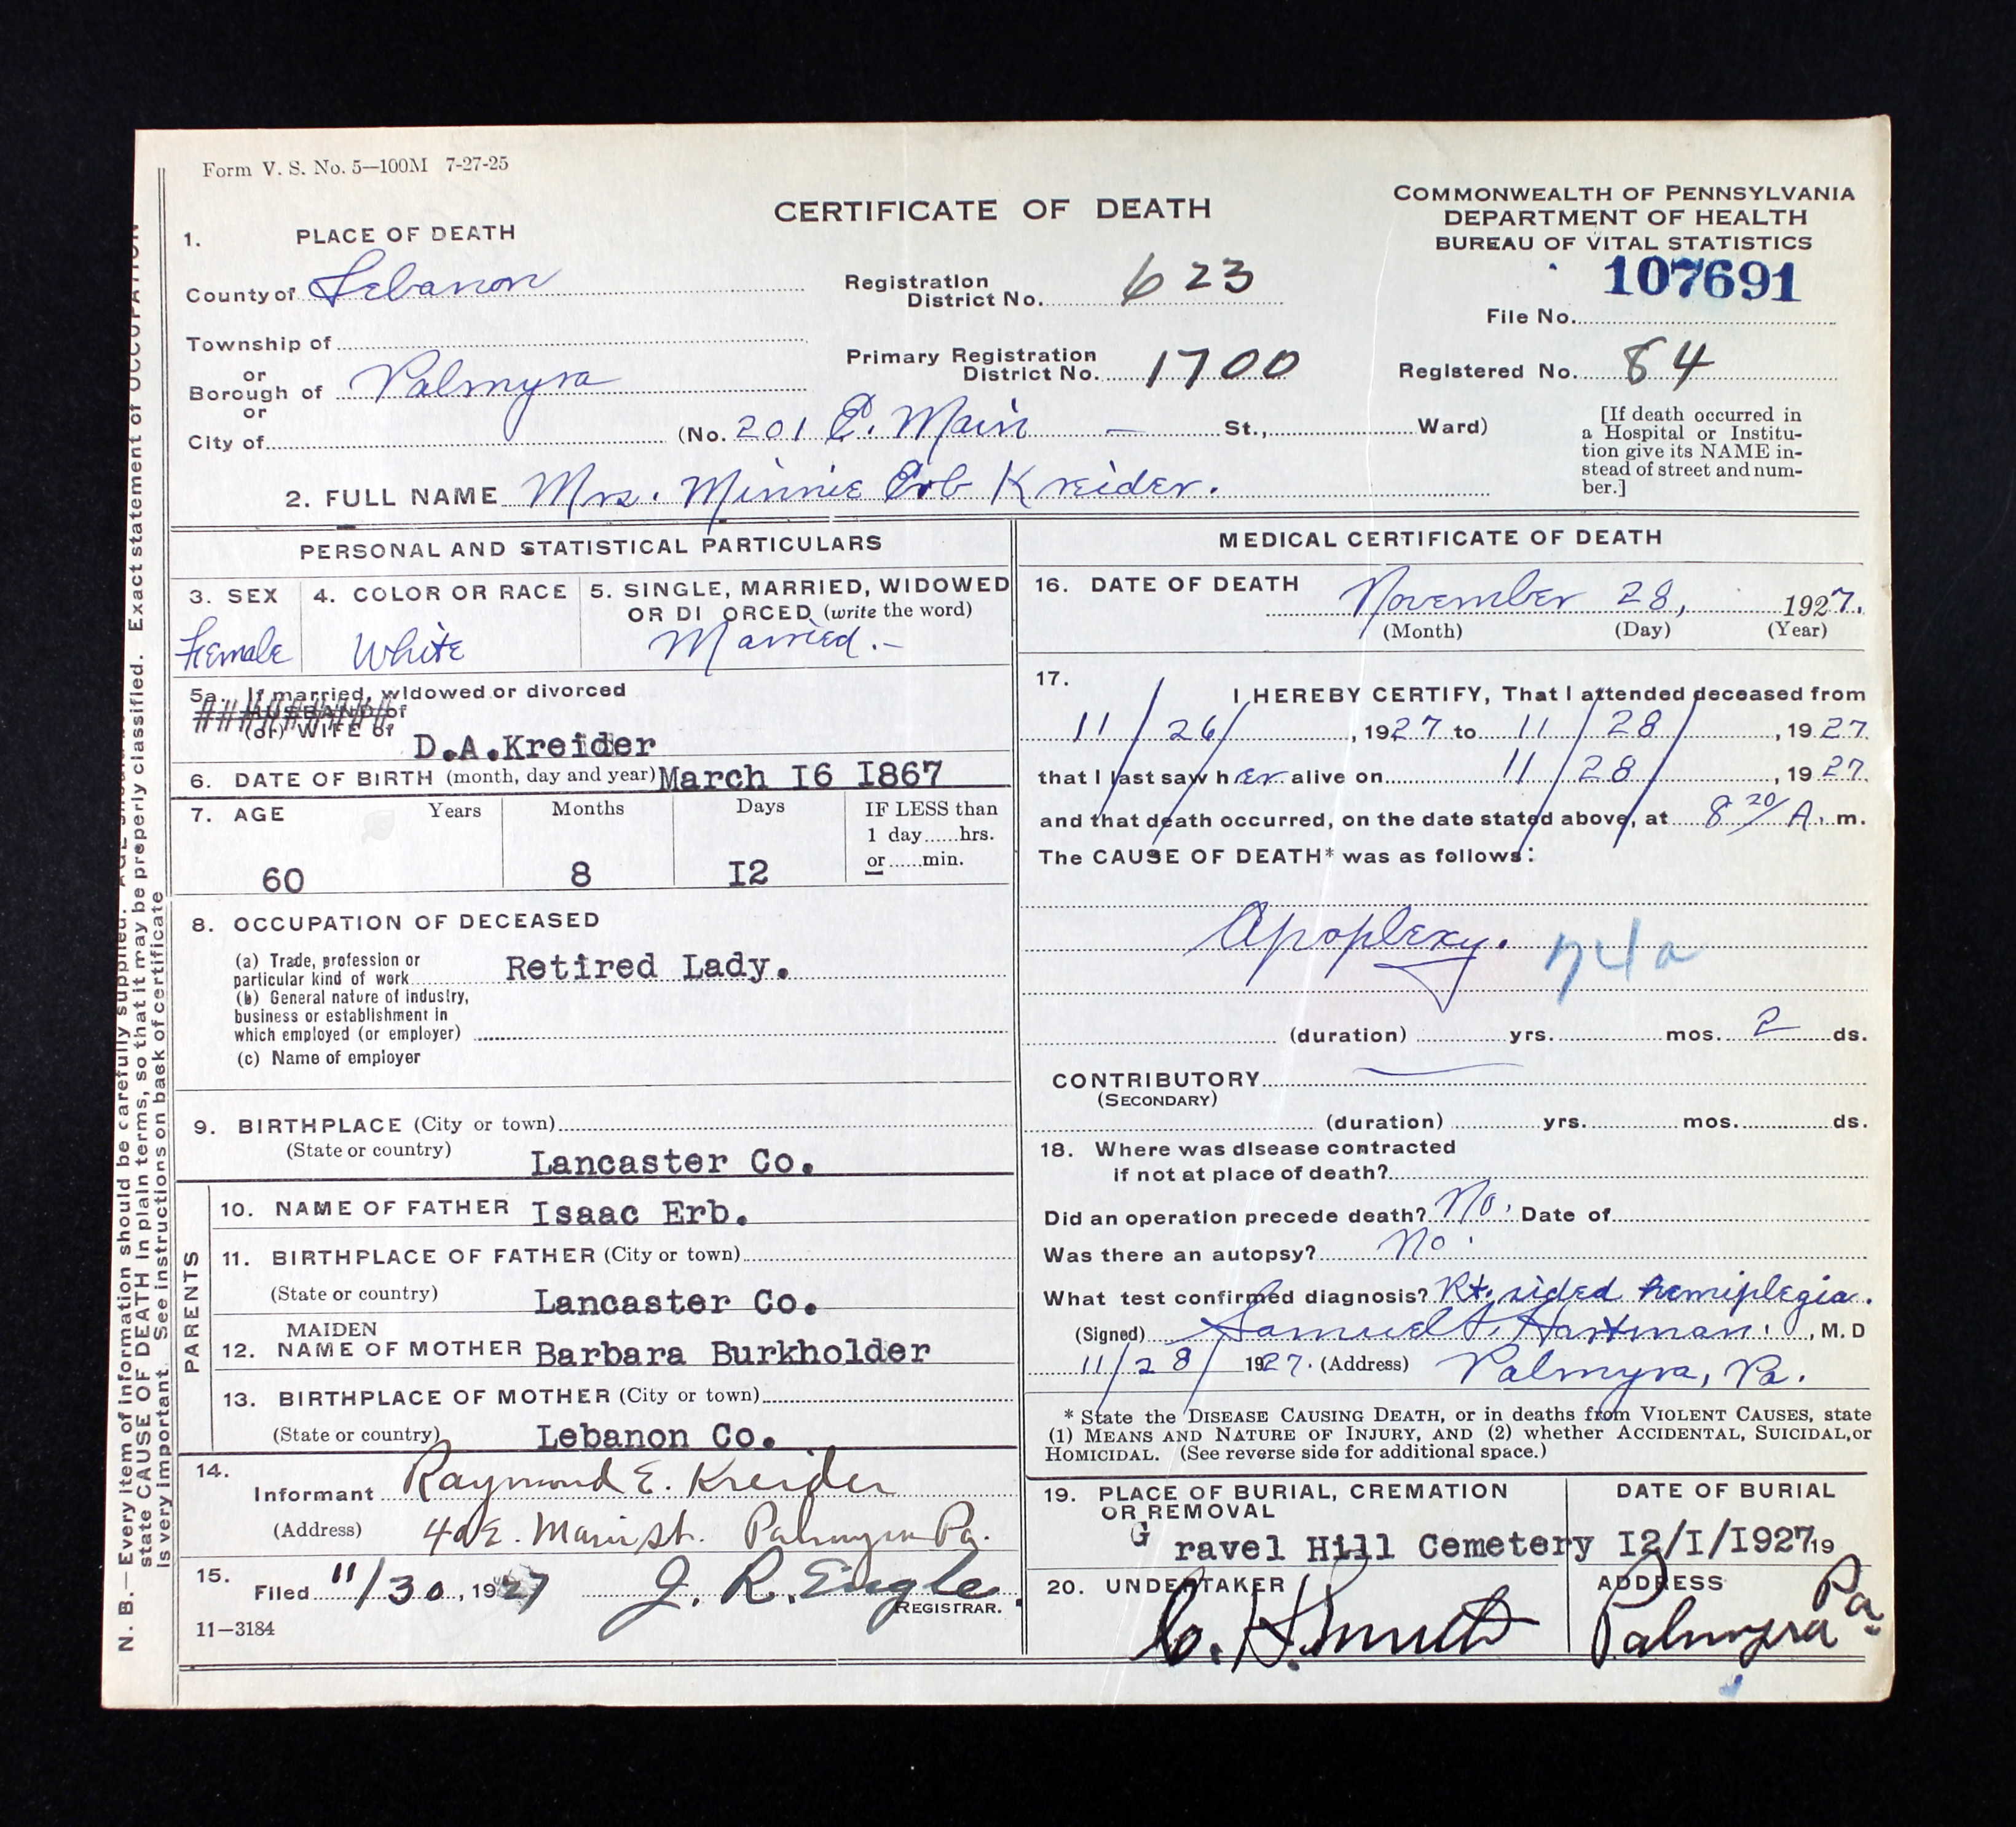 Form V. S. No. 5—100M 7-27-25
CERTIFICATE OF DEATH
COMMONWEALTH OF PENNSYLVANIA
DEPARTMENT OF HEALTH
BUREAU OF VITAL STATISTICS
107691
File No.
1. PLACE OF DEATH
County of Lebanon
Registration District No. 623
Township of
or
Borough of Palmyra
or
Primary Registration District No. 1700
Registered No. 84
City of (No. 201 E. Main — St., Ward)
[If death occurred in
a Hospital or Institu-
tion give its NAME in-
stead of street and num-
ber.]
2. FULL NAME Mrs. Minnie Erb Kreider.
PERSONAL AND STATISTICAL PARTICULARS
3. SEX
Female
4. COLOR OR RACE
White
5. SINGLE, MARRIED, WIDOWED
OR DI ORCED (write the word)
Married.-
5a. If married, widowed or divorced
HUSBAND of
(or) WIFE of D.A.Kreider
6. DATE OF BIRTH (month, day and year) March I6 I867
7. AGE Years Months Days IF LESS than
1 day......hrs.
or......min.
60 8 I2
8. OCCUPATION OF DECEASED
(a) Trade, profession or
particular kind of work Retired Lady.
(b) General nature of industry,
business or establishment in
which employed (or employer)
(c) Name of employer
9. BIRTHPLACE (City or town)
(State or country) Lancaster Co.
PARENTS
10. NAME OF FATHER Isaac Erb.
11. BIRTHPLACE OF FATHER (City or town)
(State or country) Lancaster Co.
MAIDEN
12. NAME OF MOTHER Barbara Burkholder
13. BIRTHPLACE OF MOTHER (City or town)
(State or country) Lebanon Co.
14.
Informant Raymond E. Kreider
(Address) E. Main St. Palmyra Pa.
15.
Filed 11/30, 1927 J. R. Engle
REGISTRAR.
11—3184
MEDICAL CERTIFICATE OF DEATH
16. DATE OF DEATH November 28, 1927.
(Month) (Day) (Year)
17.
I HEREBY CERTIFY, That I attended deceased from
11/26/, 1927 to 11/28/, 1927
that I last saw her alive on 11/28/, 1927
and that death occurred, on the date stated above, at 8 20/ A. m.
The CAUSE OF DEATH* was as follows:
Apoplexy. 74a
(duration) yrs. mos. 2 ds.
CONTRIBUTORY
(SECONDARY)
(duration) yrs. mos. ds.
18. Where was disease contracted
if not at place of death?
Did an operation precede death? No. Date of
Was there an autopsy? No.
What test confirmed diagnosis? Rt. sided hemiplegia.
(Signed) Samuel Hartman, M. D
11/28/ 1927. (Address) Palmyra, Pa.
* State the DISEASE CAUSING DEATH, or in deaths from VIOLENT CAUSES, state
(1) MEANS AND NATURE OF INJURY, AND (2) whether ACCIDENTAL, SUICIDAL, or
HOMICIDAL. (See reverse side for additional space.)
19. PLACE OF BURIAL, CREMATION
OR REMOVAL
DATE OF BURIAL
G ravel Hill Cemetery I2/I/I927 19
20. UNDERTAKER
ADDRESS
C. H. Smith Palmyra Pa.
N. B.—Every item of information should be carefully supplied.
state CAUSE OF DEATH in plain terms, so that it may be properly classified. Exact statement of OCCUPATION
is very important. See instructions on back of certificate